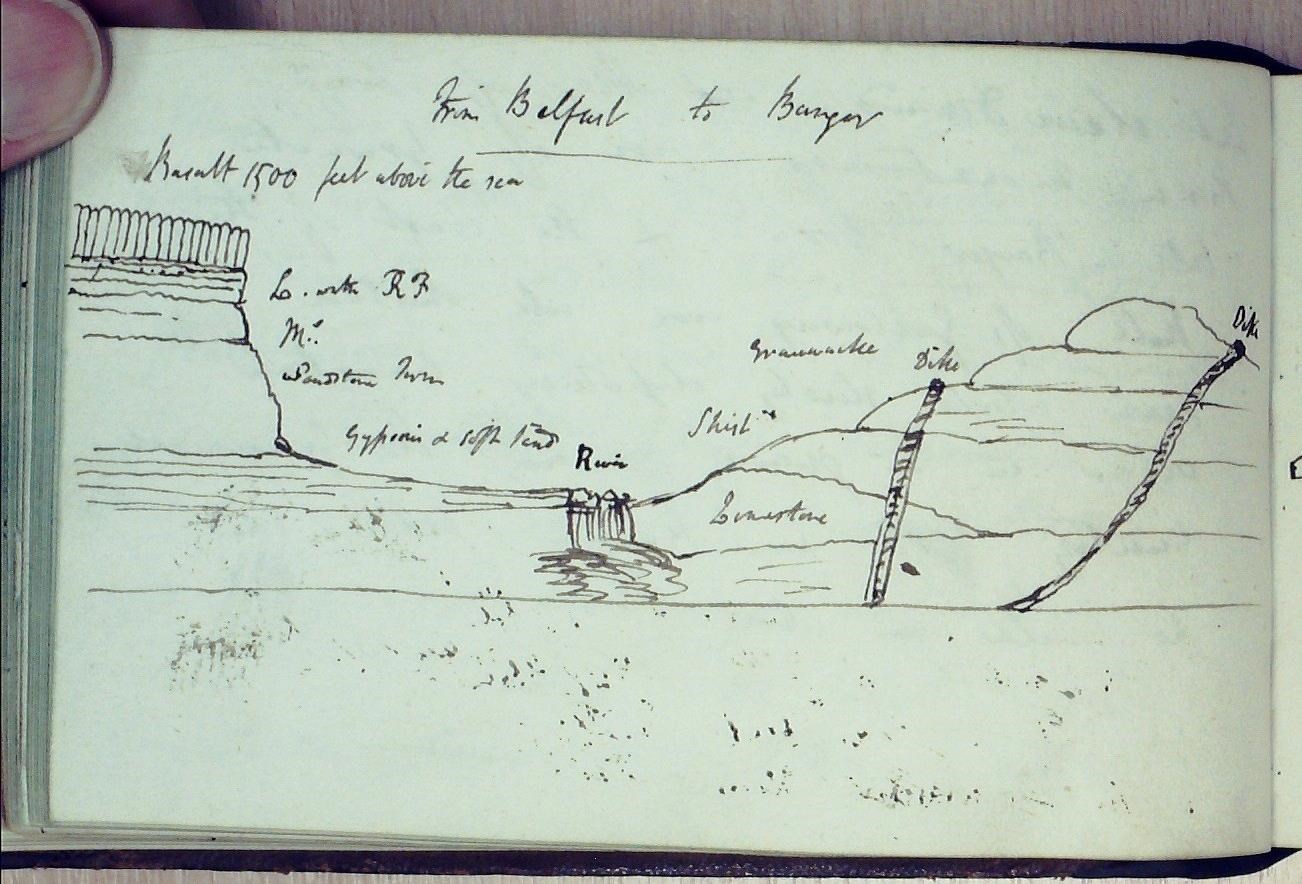 From Belfast to Bangor
Basalt 1500 feet above the sea
L. with R F
Do.
Sandstone
Gypsum & soft Sand
River
Shist
Limestone
Grauwacke
Dike
Dike